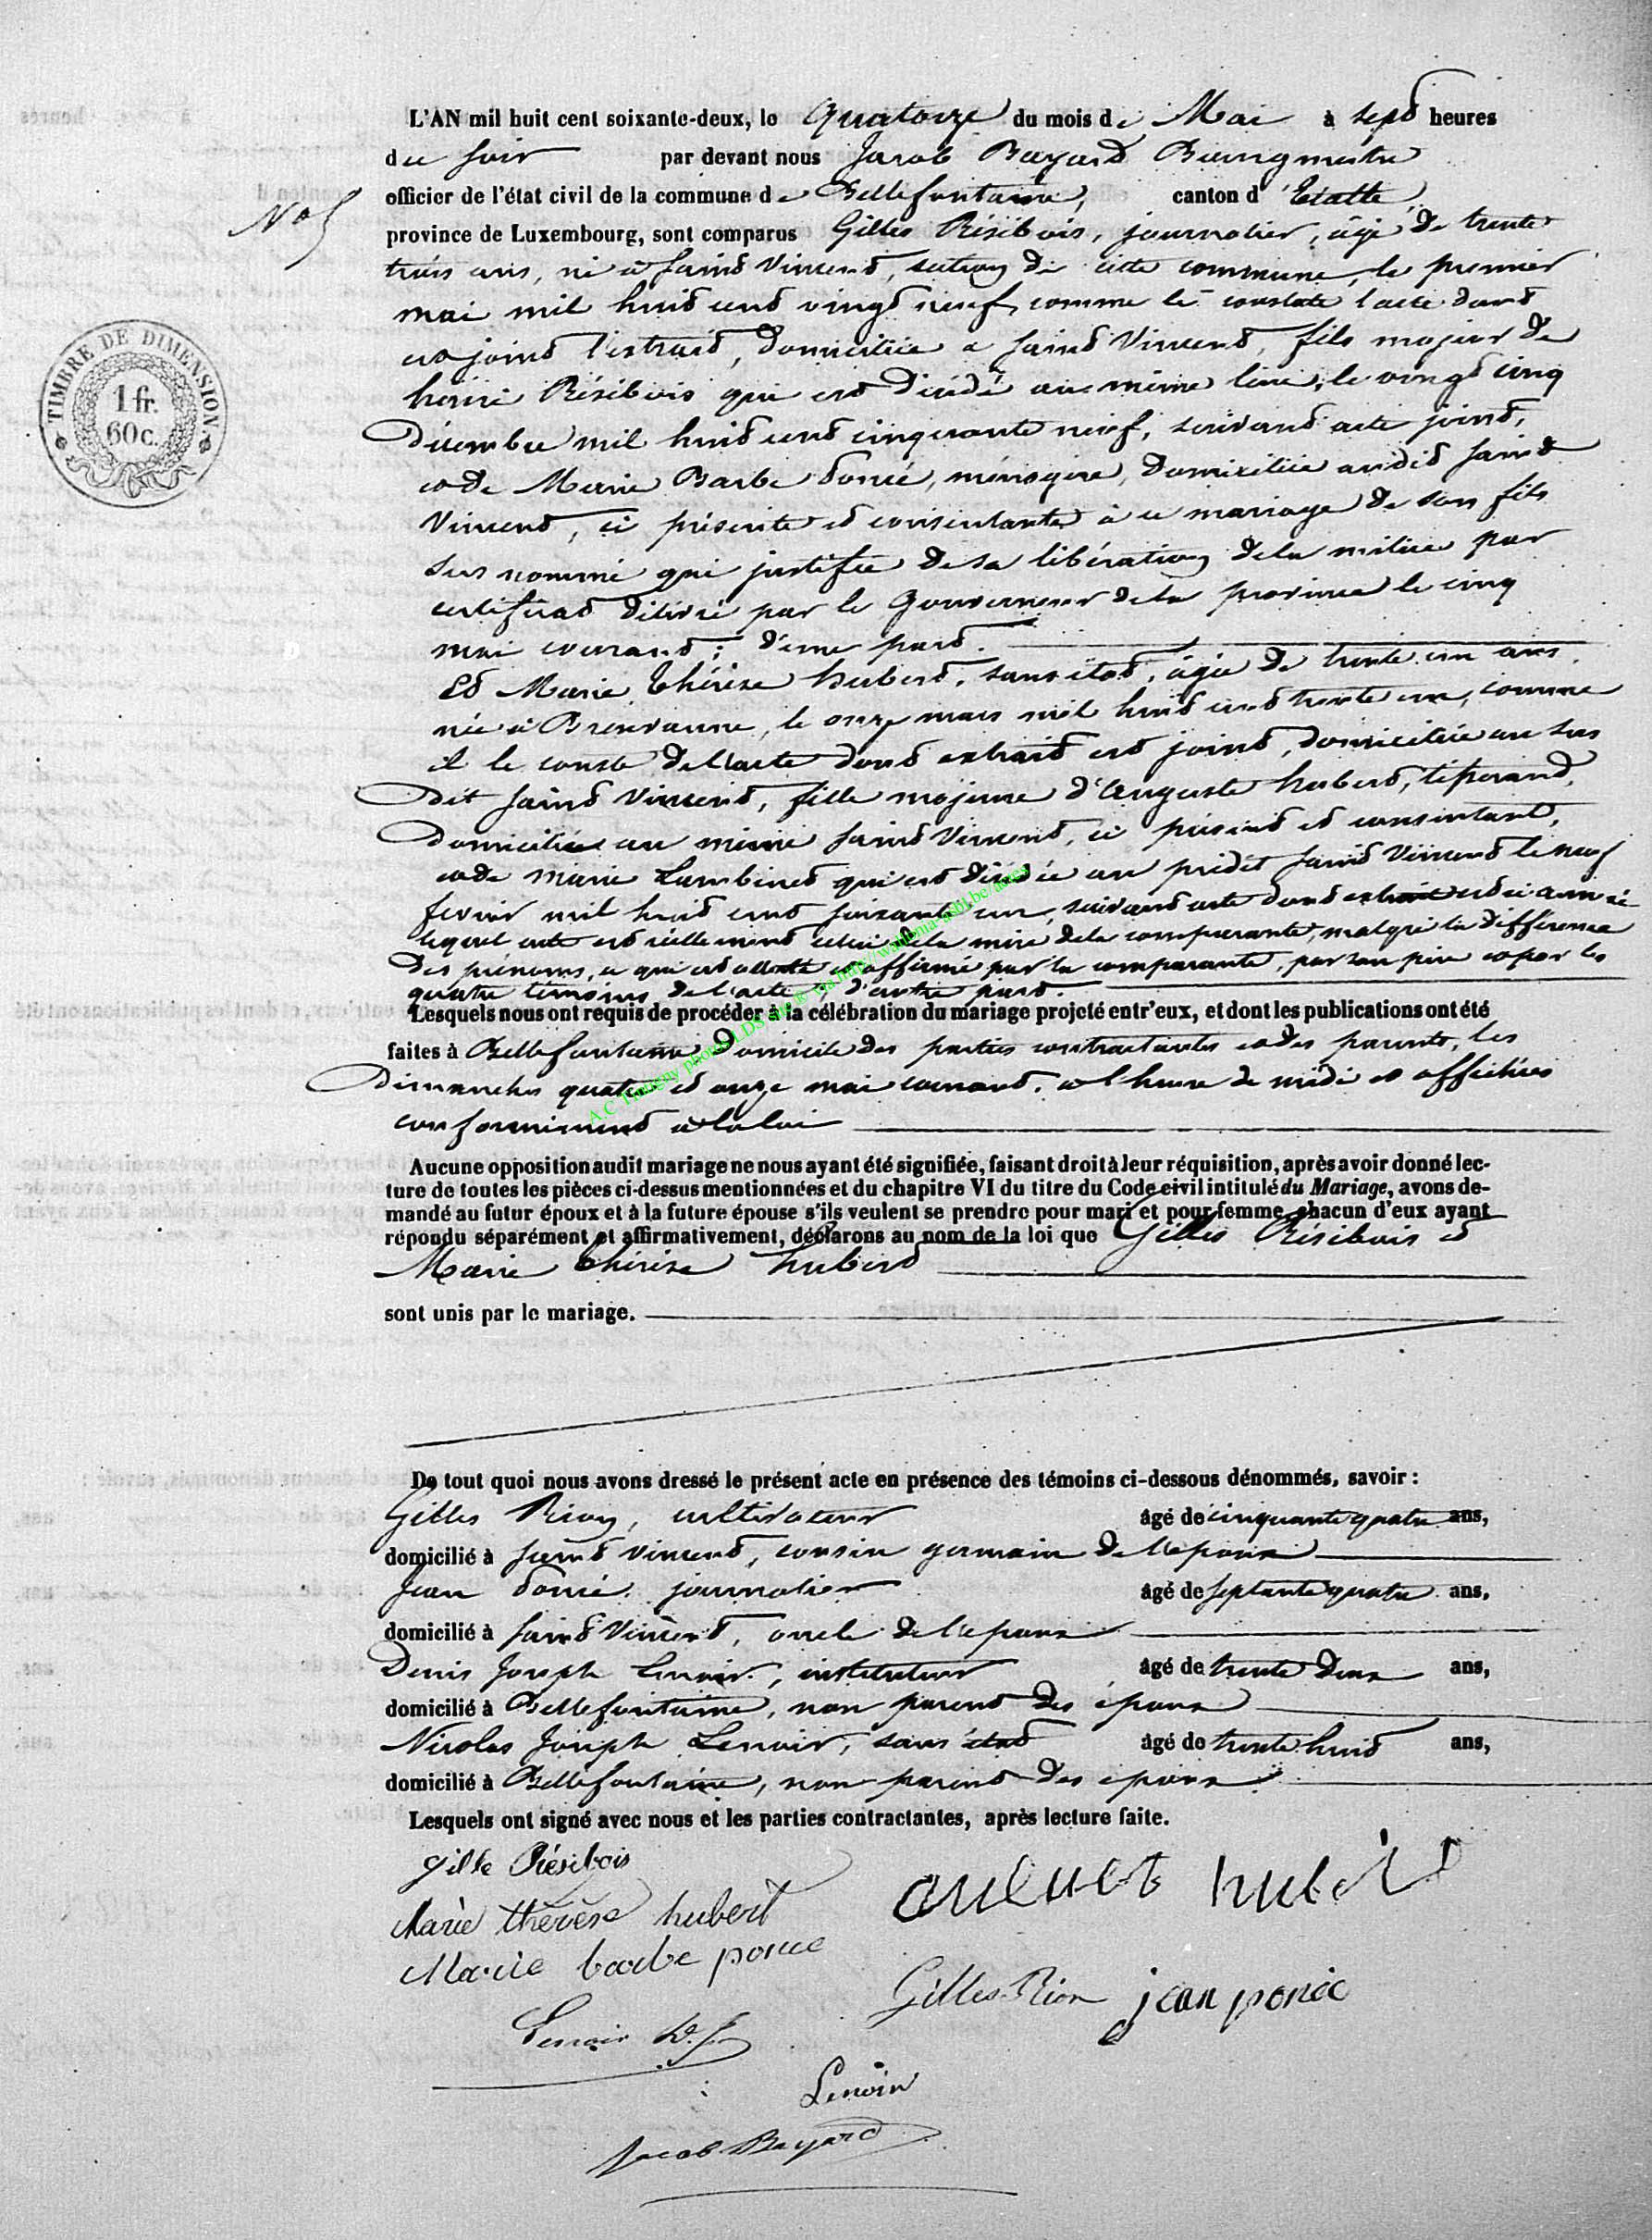 L'AN mil huit cent soixante-deux, le Quatorze du mois de Mai à sept heures
du soir par devant nous Jacob Bayard Bourgmestre
officier de l'état civil de la commune de Bellefontaine, canton d'Etalle,
No 5
province de Luxembourg, sont comparus Gilles Résibois, journalier, âgé de trente
trois ans, né à Saint Vincent, section de cette commune, le premier
mai mil huit cent vingt neuf, comme le constate l'acte dont
est joint l'extrait, domicilié à Saint Vincent, fils majeur de
henri Résibois qui est décédé au même lieu, le vingt cinq
Décembre mil huit cent cinquante neuf, suivant acte joint,
et de Marie Barbe Poncé, ménagère, domiciliée audit Saint
Vincent, ci présente et consentante à ce mariage de son fils
sus nommé qui justifie de sa libération de la milice par
certificat délivré par le Gouverneur de la province le cinq
mai courant; d'une part.
Et Marie Thérèse hubert, sans état, âgée de trente un ans,
née à Brenvanne, le onze mars mil huit cent trente un, comme
il le conste de l'acte dont extrait est joint, domiciliée au sus
dit Saint Vincent, fille majeure d'Auguste hubert, tisserand,
domicilié au même Saint Vincent, ci présent et consentant,
et de marie Lambinet qui est décédée au prédit Saint Vincent le neuf
fevrier mil huit cent soixante un, suivant acte dont extrait est ci annexé
lequel acte est réellement celui de la mère de la comparante, malgré la différence
des prénoms, ce qui est attesté et affirmé par la comparante, par son père et par les
quatre témoins de l'acte, d'autre part.
Lesquels nous ont requis de procéder à la célébration du mariage projeté entr'eux, et dont les publications ont été
faites à Bellefontaine, Domicile des parties contractantes et des parents, les
Dimanches quatre et onze mai courant, à l'heure de midi et affichées
conformément à la loi
A.C Tintigny photo LDS via http://wallonia-asbl.be/
Aucune opposition audit mariage ne nous ayant été signifiée, faisant droit à leur réquisition, après avoir donné lec-
ture de toutes les pièces ci-dessus mentionnées et du chapitre VI du titre du Code civil intitulé du Mariage, avons de-
mandé au futur époux et à la future épouse s'ils veulent se prendre pour mari et pour femme, chacun d'eux ayant
répondu séparément et affirmativement, déclarons au nom de la loi que Gilles Résibois et
Marie Thérèse hubert
sont unis par le mariage.
De tout quoi nous avons dressé le présent acte en présence des témoins ci-dessous dénommés, savoir :
Gilles Rion, cultivateur âgé de cinquante quatre ans,
domicilié à Saint Vincent, cousin germain de l'époux
Jean Poncé, journalier âgé de septante quatre ans,
domicilié à Saint Vincent, oncle de l'époux
Denis Joseph Lenoir, instituteur âgé de trente deux ans,
domicilié à Bellefontaine, non parent des époux
Nicolas Joseph Lenoir, sans état âgé de trente huit ans,
domicilié à Bellefontaine, non parent des époux
Lesquels ont signé avec nous et les parties contractantes, après lecture faite.
gille Résibois
Marie thérèse hubert hubert
Marie barbe ponce
Gilles Rion jean poncé
Lenoir D.J.
Lenoir
Jacob Bayard
TIMBRE DE DIMENSION
1 fr.
60 c.